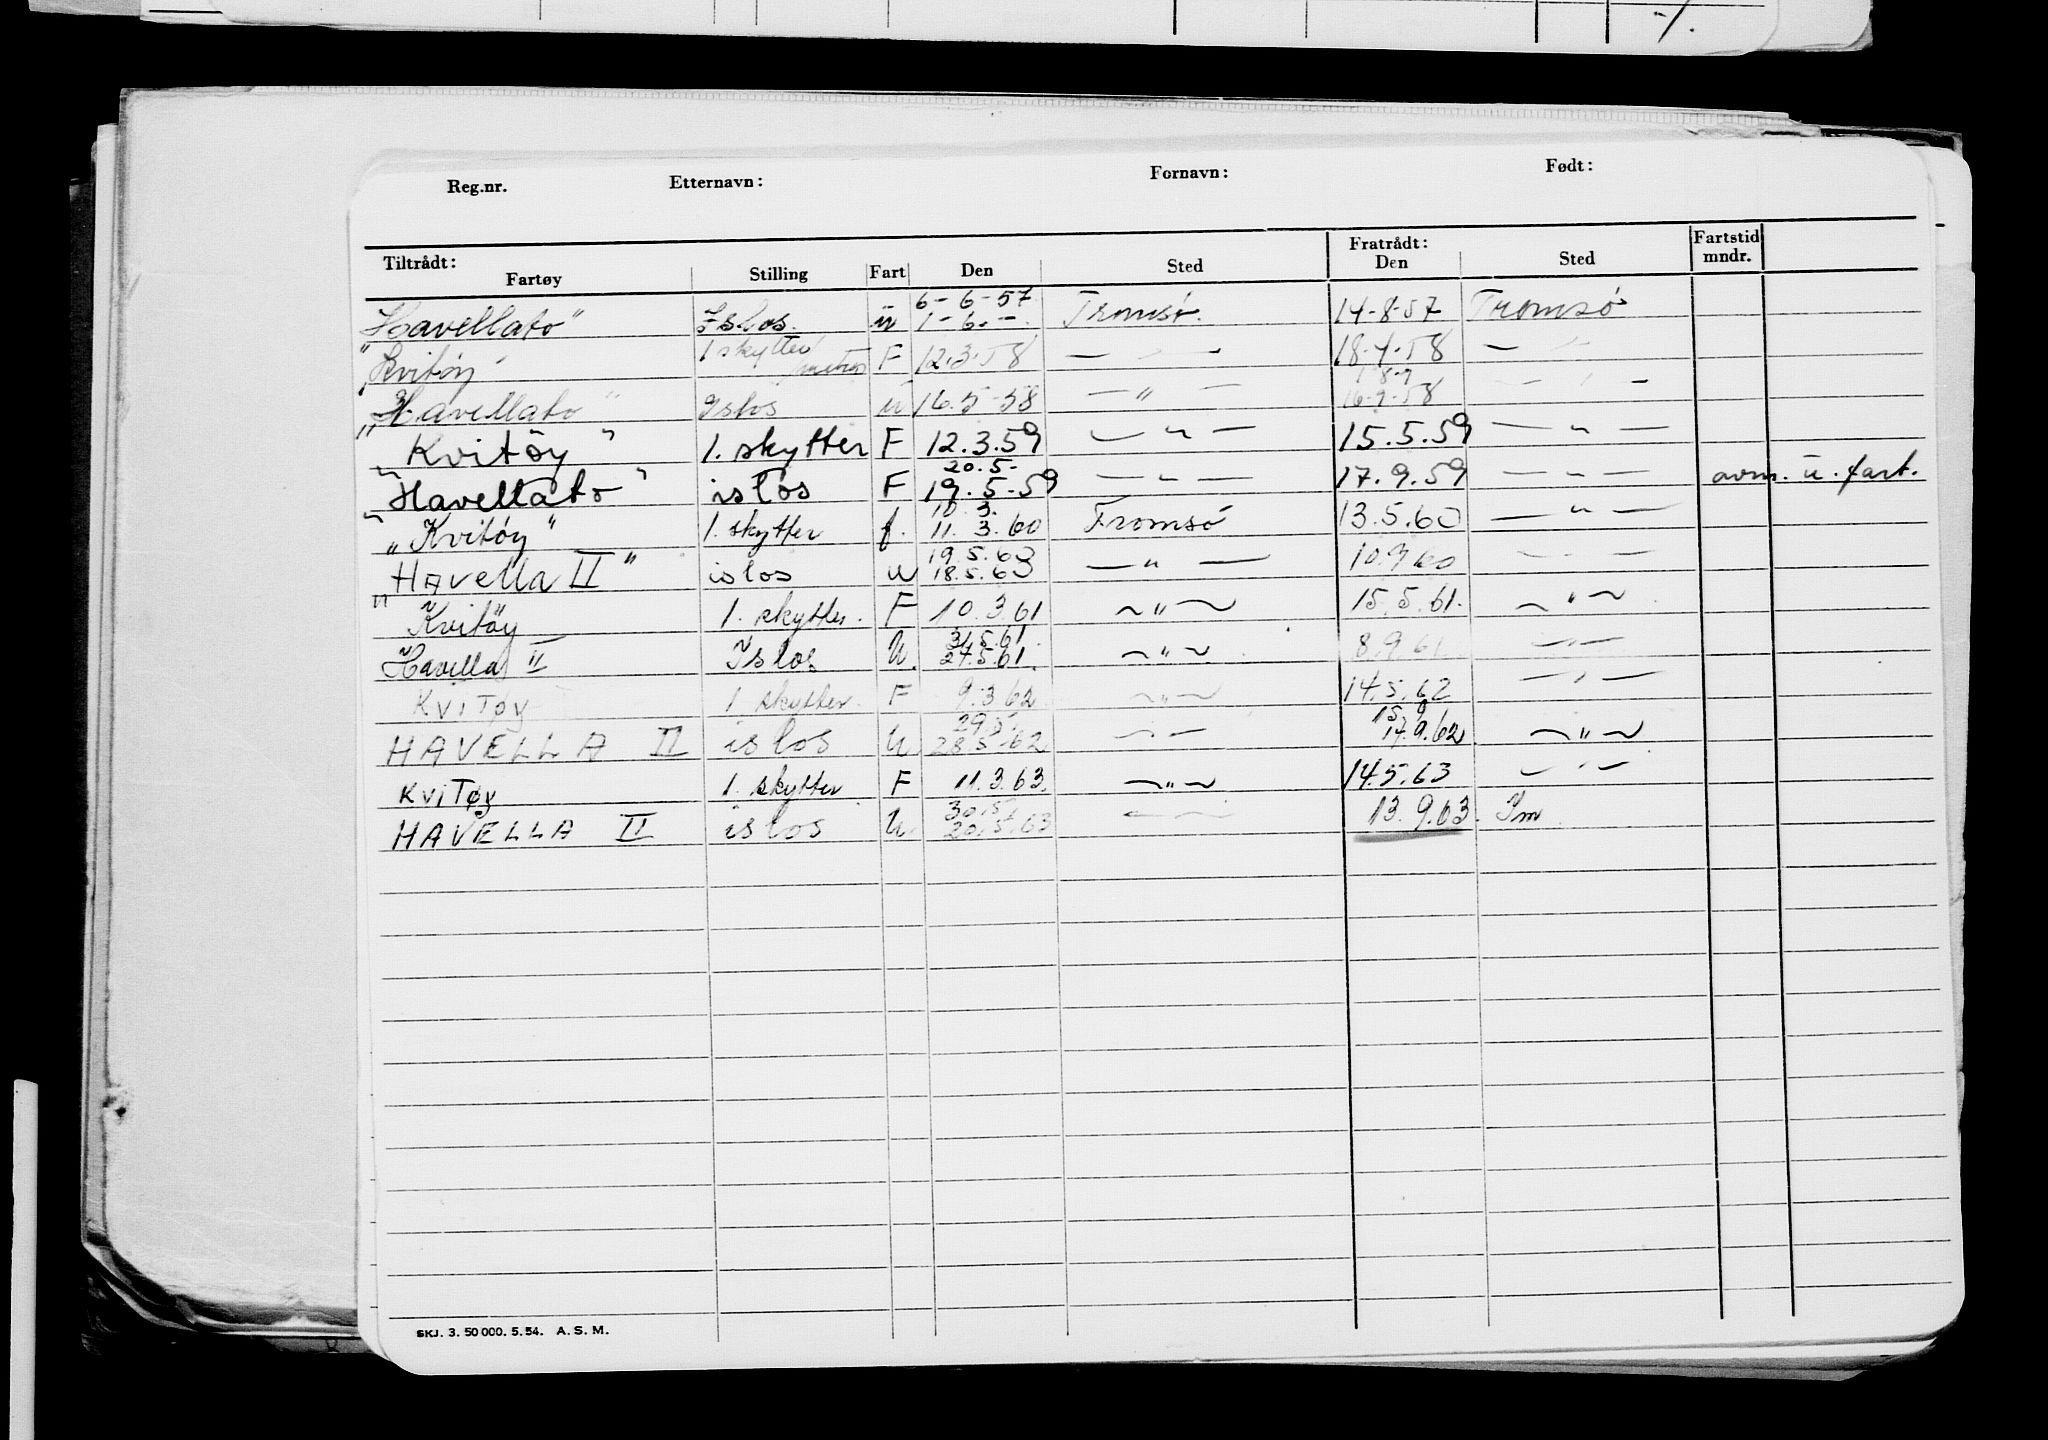 -/.
Reg.nr. Etternavn: Fornavn: Født:
Tiltrådt: Fratrådt: Fartstid
Fartøy Stilling Fart Den Sted Den Sted mndr.
6-6-57
"Havellato" Islos. u 1-6.- Tromsø. 14-8-57 Tromsø
"Kvitøy" 1 skytter F 12.3.58 — " — 18.4.58 — " —
"Havellato" Islos u 16.5-58 — " — 16-9-58 — " —
"Kvitøy" 1. skytter F 12.3.59 — " — 15.5.59 — " —
20.5-
"Havellato" islos F 19.5-59 — " — 17.9.59 — " — avm. u. fart.
10.3.
"Kvitøy" 1. skytter f. 11.3.60 Tromsø 13.5.60 — " —
19.5.60
"Havella II" islos u 18.5.60 — " — 10.9.60 — " —
"Kvitøy 1. skytter. F 10.3.61 — " — 15.5.61. — " —
31.5.61.
"Havella II Islos U. 27.5.61. — " — 8.9.61 — " —
KVITØY 1 skytter. F 9.3.62 — " — 14.5.62 — " —
29.5. 15.9
HAVELLA II islos U 28.5.62 — " — 17.9.62 — " —
KVITØY 1. skytter F 11.3.63. — " — 14.5.63 — " —
30.5.
HAVELLA II islos U. 20.5.63 — " — 13.9.63.
SKJ. 3. 50 000. 5. 54. A. S. M.